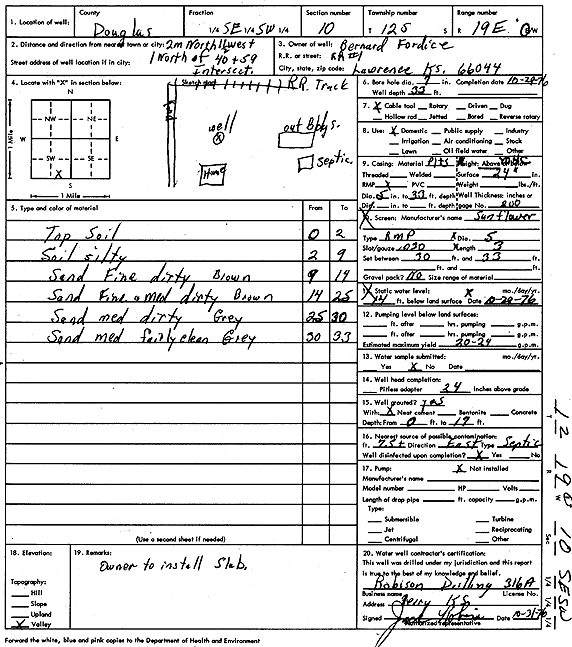 1. Location of well:
County
Douglas
Fraction
1/4 SE 1/4 SW 1/4
Section number
10
Township number
T 12S S
Range number
R 19E E/W
2. Distance and direction from nearest town or city: 2m Northwest
Street address of well location if in city: 1 North of 40+59
Intersect.
3. Owner of well: Bernard Fordice
R.R. or street: RR#1
City, state, zip code: Lawrence Ks. 66044
4. Locate with "X" in section below:
N
NW NE
W E
SW SE
X
S
1 Mile
1 Mile
Sketch map:
R.R. Track
Road
well
X
out Bldgs.
Septic.
Home
6. Bore hole dia. 9 in. Completion date 10-29-76
Well depth 33 ft.
7. X Cable tool Rotary Driven Dug
Hollow rod Jetted Bored Reverse rotary
8. Use: X Domestic Public supply Industry
Irrigation Air conditioning Stock
Lawn Oil field water Other
9. Casing: Material Plts Height: Above or below
Threaded Welded Surface 24 in.
RMP X PVC Weight lbs./ft.
Dia. 5 in. to 33 ft. depth Wall Thickness: inches or
Dia. in. to ft. depth gage No. 200
10. Screen: Manufacturer's name Sunflower
Type RMP Dia. 5
Slot/gauze .030 Length 3
Set between 30 ft. and 33 ft.
ft. and ft.
Gravel pack? No Size range of material
11. Static water level: X mo./day/yr.
14 ft. below land surface Date 10-29-76
12. Pumping level below land surfaces:
ft. after hrs. pumping g.p.m.
ft. after hrs. pumping g.p.m.
Estimated maximum yield 20-24 g.p.m.
13. Water sample submitted: mo./day/yr.
Yes X No Date
14. Well head completion:
Pitless adapter 24 Inches above grade
15. Well grouted? yes
With: X Neat cement Bentonite Concrete
Depth: From 0 ft. to 17 ft.
16. Nearest source of possible contamination:
ft. 75+ Direction East Type Septic
Well disinfected upon completion? X Yes No
17. Pump: X Not installed
Manufacturer's name
Model number HP Volts
Length of drop pipe ft. capacity g.p.m.
Type:
Submersible Turbine
Jet Reciprocating
Centrifugal Other
5. Type and color of material From To
Top Soil 0 2
Soil silty 2 9
Sand Fine dirty Brown 9 14
Sand Fine & med dirty Brown 14 25
Sand med dirty Grey 25 30
Sand med fairly clean Grey 30 33
(Use a second sheet if needed)
18. Elevation:
Topography:
Hill
Slope
Upland
X Valley
19. Remarks:
Owner to install Slab.
20. Water well contractor's certification:
This well was drilled under my jurisdiction and this report
is true to the best of my knowledge and belief.
Robison Drilling 316A
Business name License No.
Address Perry KS
Signed Date 10-31-76
Authorized representative
Forward the white, blue and pink copies to the Department of Health and Environment
T 12 R 19 E W Sec 10 SESW
1/4 1/4 1/4